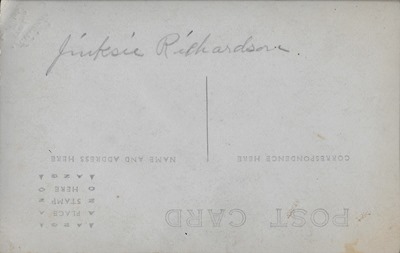 Jinksie Richardson.
NAME AND ADDRESS HERE
CORRESPONDENCE HERE
PLACE
STAMP
HERE
POST CARD